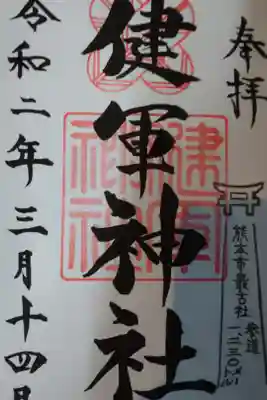 奉拝
熊本市最古社
参道
一、二三〇メートル
健軍神社
健軍神社
令和二年三月十四日